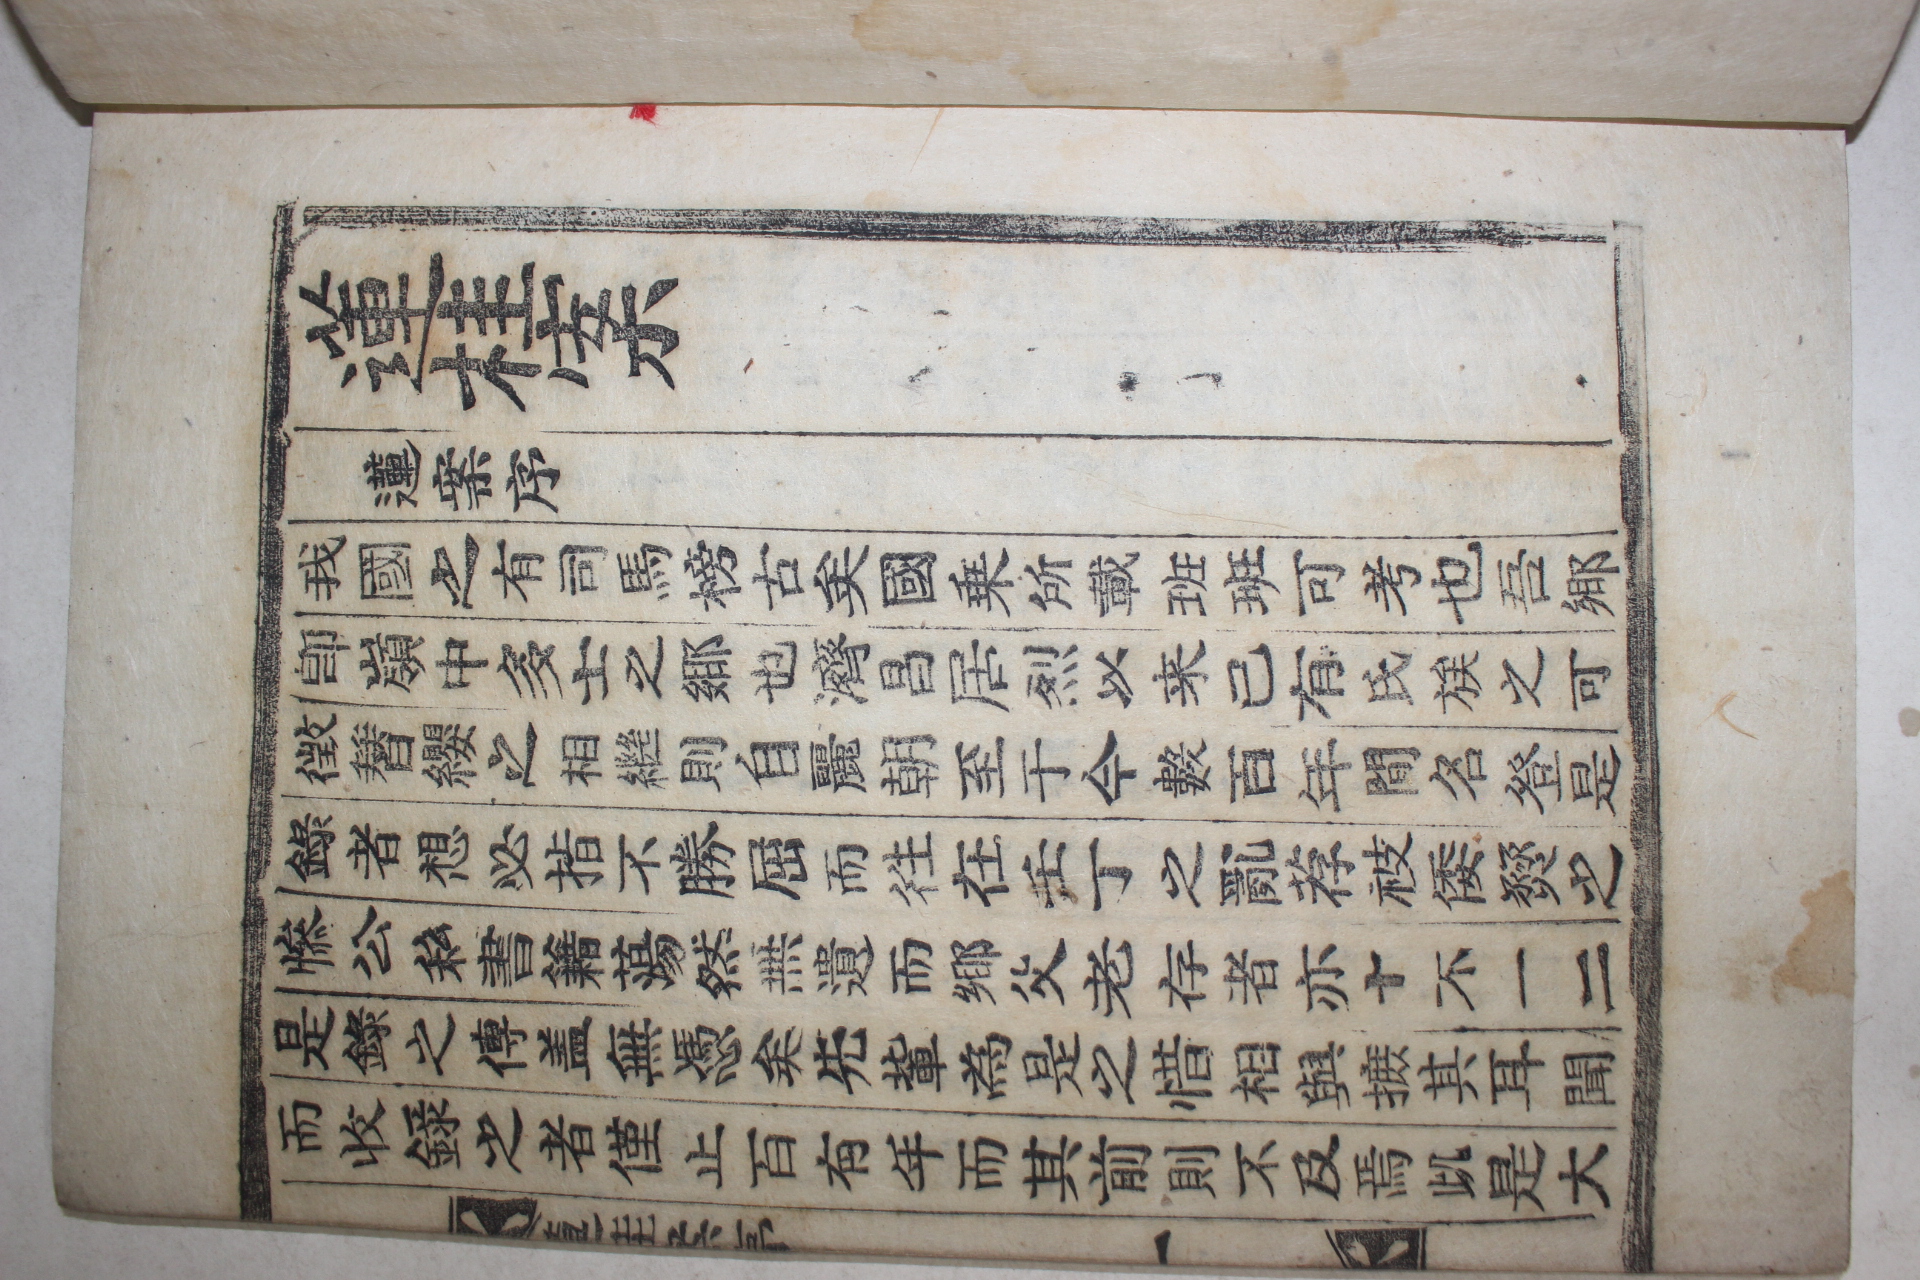 蓮桂案
蓮案序
我國之有司馬榜古矣國乗所載班班可考也吾鄉
卽嶺中多士之鄉也濟昌居烈以来已有氏族之可
徵簪纓之相繼則自麗朝至于今數百年間名登是
錄者想必指不勝屈而徃在壬丁之亂荐被倭燹之
慘公私書籍蕩然無遺而鄉父老存者亦十不一二
是錄之傳盖無憑矣先輩為是之惜相與摭其耳聞
而收錄之者僅止百有年而其前則不及焉此是大
蓮桂案序
一